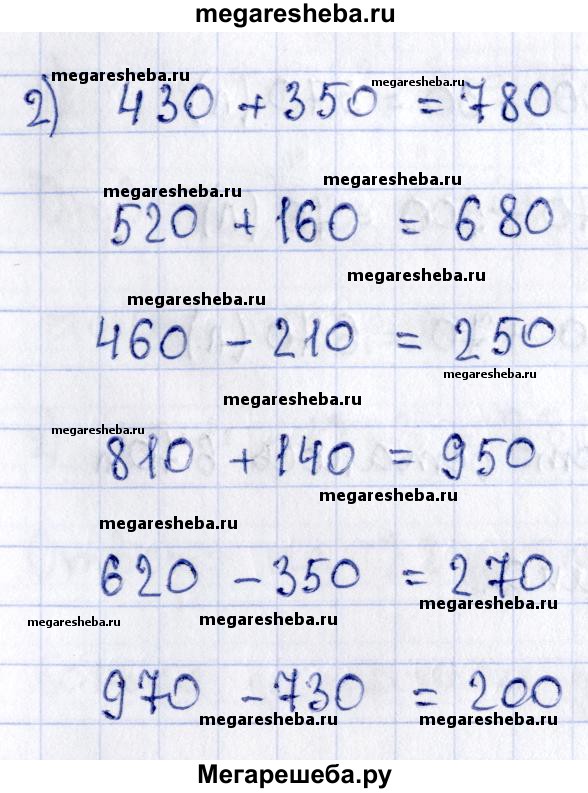 megaresheba.ru
megaresheba.ru
megaresheba.ru
2) 430 + 350 = 780
megaresheba.ru
megaresheba.ru
520 + 160 = 680
megaresheba.ru
megaresheba.ru
460 - 210 = 250
megaresheba.ru
megaresheba.ru
megaresheba.ru
810 + 140 = 950
megaresheba.ru
megaresheba.ru
620 - 350 = 270
megaresheba.ru
megaresheba.ru
megaresheba.ru
970 - 730 = 200
megaresheba.ru
megaresheba.ru
Мегарешеба.ру